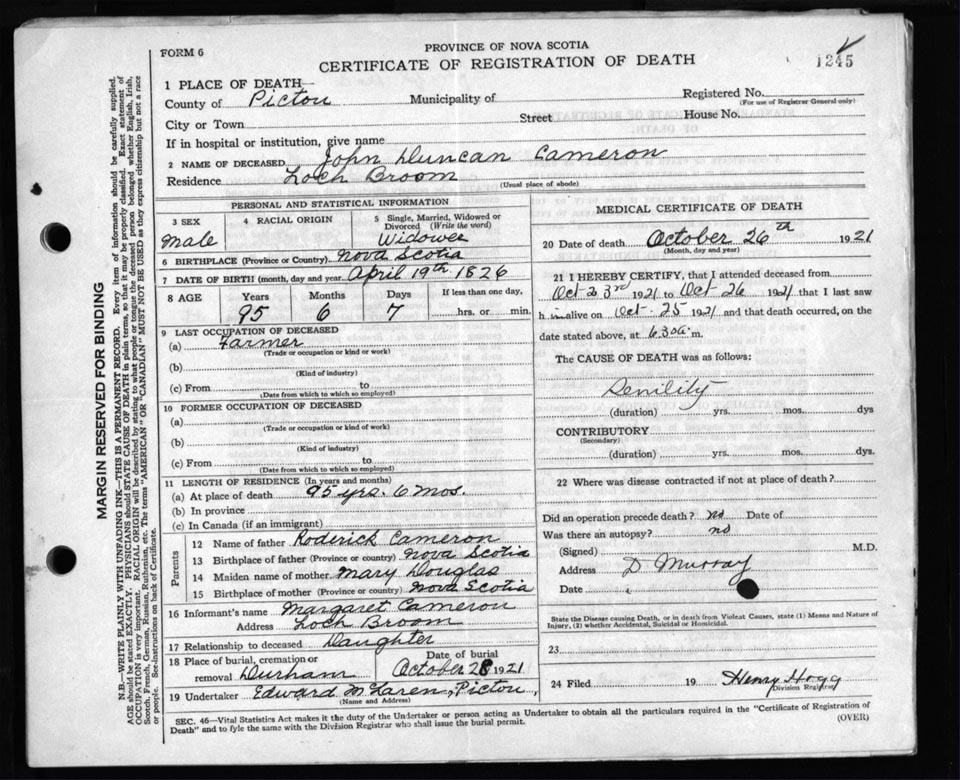 FORM 6
PROVINCE OF NOVA SCOTIA
CERTIFICATE OF REGISTRATION OF DEATH
1245
1 PLACE OF DEATH—
County of Pictou Municipality of
Registered No.
(For use of Registrar General only)
City or Town Street House No.
If in hospital or institution, give name
2 NAME OF DECEASED John Duncan Cameron
Residence Loch Broom
(Usual place of abode)
PERSONAL AND STATISTICAL INFORMATION
3 SEX
Male
4 RACIAL ORIGIN
5 Single, Married, Widowed or
Divorced (Write the word)
Widower
6 BIRTHPLACE (Province or Country) Nova Scotia
7 DATE OF BIRTH (month, day and year) April 19th 1826
8 AGE Years Months Days If less than one day,
95 6 7 hrs. or min.
9 LAST OCCUPATION OF DECEASED
(a) Farmer
(Trade or occupation or kind or work)
(b)
(Kind of industry)
(c) From to
(Date from which to which so employed)
10 FORMER OCCUPATION OF DECEASED
(a)
(Trade or occupation or kind of work)
(b)
(Kind of industry)
(c) From to
(Date from which to which so employed)
11 LENGTH OF RESIDENCE (In years and months)
(a) At place of death 95 yrs. 6 mos.
(b) In province
(c) In Canada (if an immigrant)
Parents
12 Name of father Roderick Cameron
13 Birthplace of father (Province or country) Nova Scotia
14 Maiden name of mother Mary Douglas
15 Birthplace of mother (Province or country) Nova Scotia
16 Informant's name Margaret Cameron
Address Loch Broom
17 Relationship to deceased Daughter
18 Place of burial, cremation or
removal Durham
Date of burial
October 28 1921
19 Undertaker Edward McLaren, Pictou,
(Name and Address)
MEDICAL CERTIFICATE OF DEATH
20 Date of death October 26th 1921
(Month, day and year)
21 I HEREBY CERTIFY, that I attended deceased from
Oct 23rd 1921 to Oct 26 1921 that I last saw
h im alive on Oct. 25 1921 and that death occurred, on the
date stated above, at 6 30 a. m.
The CAUSE OF DEATH was as follows:
Senility
(duration) yrs. mos. dys
CONTRIBUTORY
(Secondary)
(duration) yrs. mos. dys.
22 Where was disease contracted if not at place of death?
Did an operation precede death? no Date of
Was there an autopsy? no
(Signed) M.D.
Address D Murray
Date
State the Disease causing Death, or in death from Violent Causes, state (1) Means and Nature of
Injury, (2) whether Accidental, Suicidal or Homicidal.
23
24 Filed 19 Henry Hogg
Division Registrar
SEC. 46—Vital Statistics Act makes it the duty of the Undertaker or person acting as Undertaker to obtain all the particulars required in the "Certificate of Registration of
Death" and to fyle the same with the Division Registrar who shall issue the burial permit.
(OVER)
MARGIN RESERVED FOR BINDING
N.B.—WRITE PLAINLY WITH UNFADING INK—THIS IS A PERMANENT RECORD. Every item of information should be carefully supplied.
AGE should be stated EXACTLY. PHYSICIANS should STATE CAUSE OF DEATH in plain terms, so that it may be properly classified. Exact statement of
OCCUPATION is very important. RACIAL ORIGIN will be described by stating to what people or tongue the deceased person belonged whether English, Irish,
Scotch, French, German, Russian, Ruthenian, etc. The terms "AMERICAN" OR "CANADIAN" MUST NOT BE USED as they express citizenship but not a race
or people. See instructions on back of Certificate.